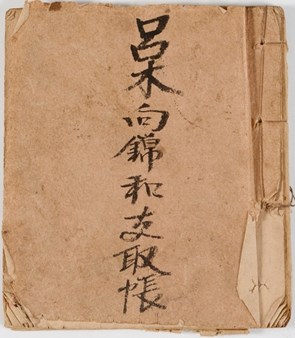 呂木向錦和支取帳